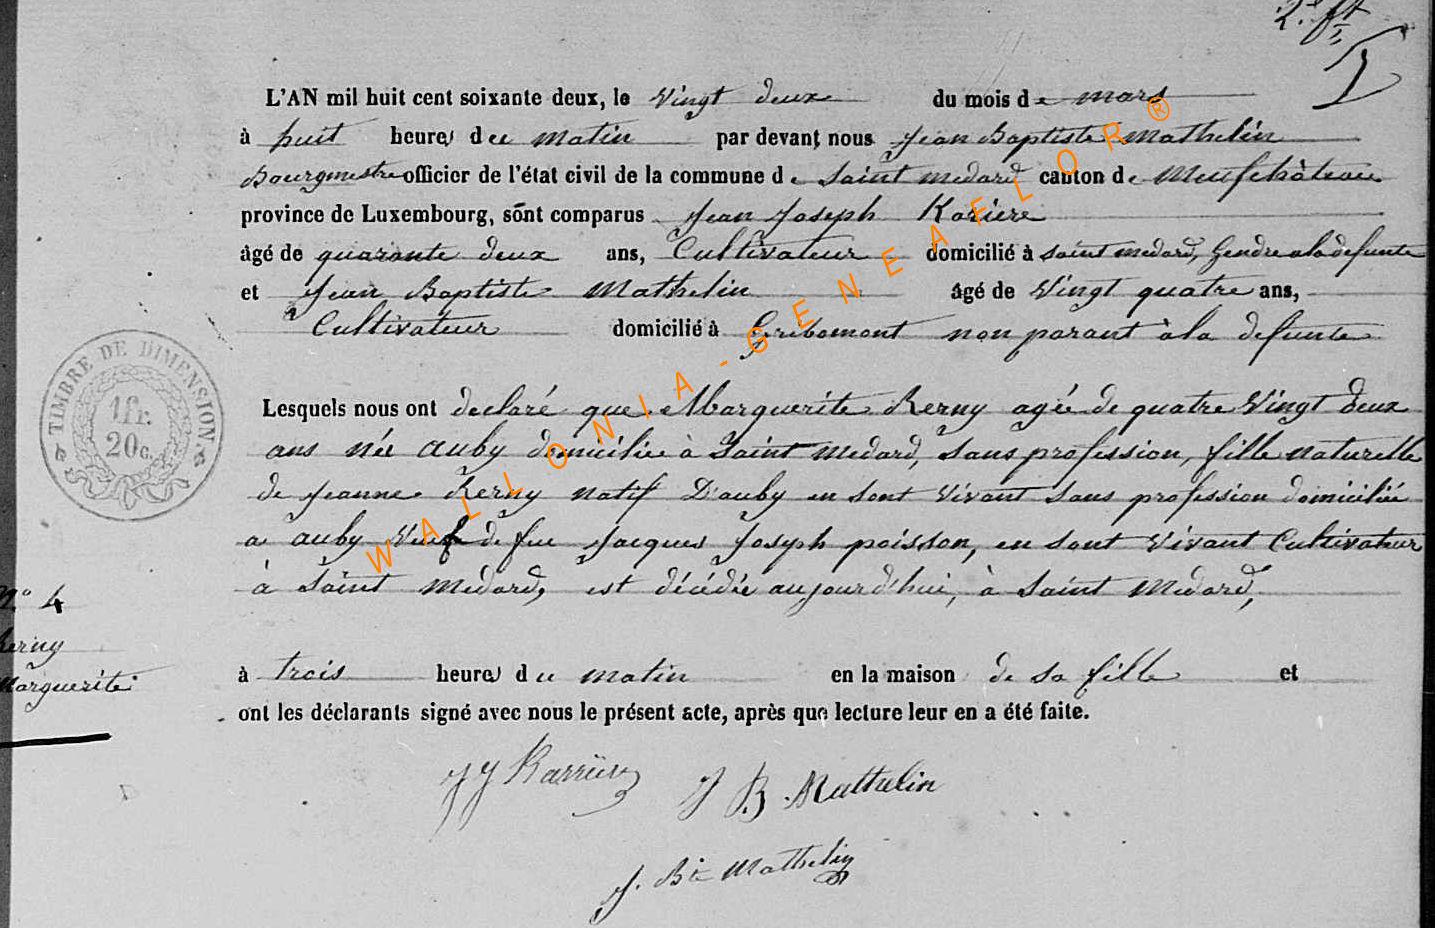 2e ft
L'AN mil huit cent soixante deux, le Vingt deux du mois de mars
à huit heures du matin par devant nous Jean Baptiste Mathelin
Bourgmestre officier de l'état civil de la commune de Saint medard canton de Neufchâteau
province de Luxembourg, sont comparus Jean Joseph Kariere
âgé de quarante deux ans, Cultivateur domicilié à saint medard, Gendre a la defunte
et Jean Baptiste Mathelin âgé de Vingt quatre ans,
Cultivateur domicilié à Gribomont non parant à la defunte
TIMBRE DE DIMENSION
1fr.
20c.
Lesquels nous ont declaré que Marguerite Kerny agée de quatre Vingt deux
ans née auby domiciliée à Saint medard, sans profession, fille naturelle
de Jeanne Kerny natif D'auby en sont vivant sans profession domiciliée
a auby Veuf de feu Jacques Joseph poisson, en sont vivant Cultivateur
à Saint medard, est décédée aujourd'hui, à Saint Medard,
No 4
Kerny
Marguerite
à trois heures du matin en la maison de sa fille et
ont les déclarants signé avec nous le présent acte, après que lecture leur en a été faite.
JJ Karriere J B Mathelin
J. Bte Mathelin
WALLONIA-GENEAFLOR®